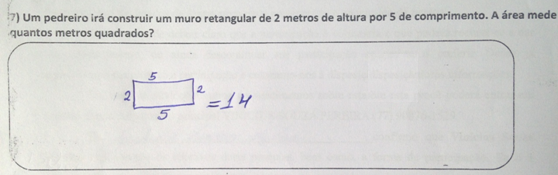 7) Um pedreiro irá construir um muro retangular de 2 metros de altura por 5 de comprimento. A área mede
quantos metros quadrados?
5
2 2
5 =14